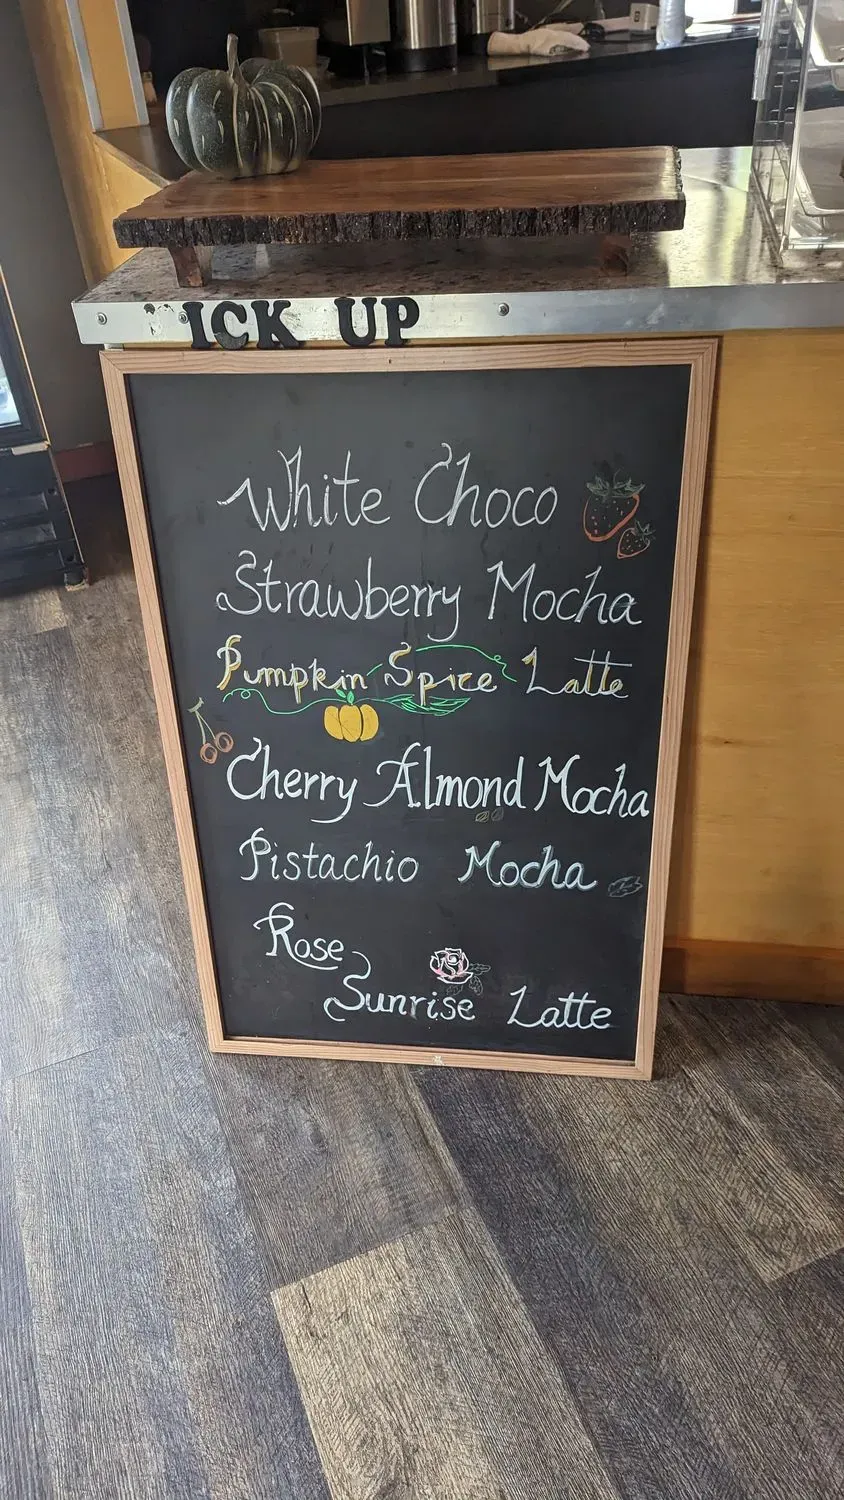 ICK UP
White Choco
Strawberry Mocha
Pumpkin Spice Latte
Cherry Almond Mocha
Pistachio Mocha
Rose
Sunrise Latte